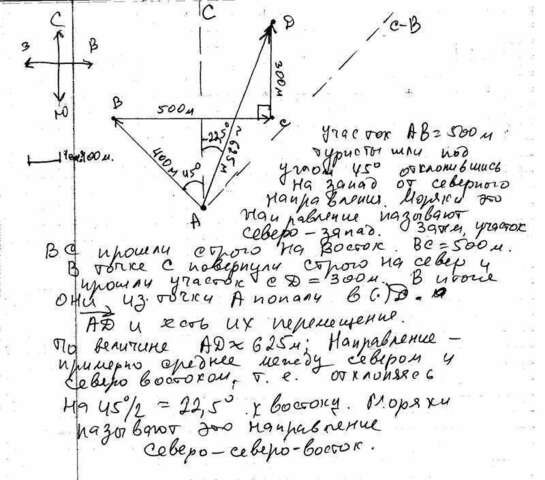 С
D
С-В
С
З
В
Ю
300м
В
500м
С
22,5°
≈625м
400м
45°
А
1см=100м.
участок АВ=500м
туристы шли под
углом 45° отклонившись
на запад от северного
направления. Моряки это
направление называют
северо-запад. Затем, участок
ВС прошли строго на Восток. ВС=500м.
В точке С повернули строго на север и
прошли участок СD=300м. В итоге
они из точки А попали в (·)D.
AD и есть их перемещение.
По величине AD≈625м; Направление -
примерно среднее между севером и
северо востоком, т.е. отклоняясь
на 45°/2 = 22,5° к востоку. Моряки
называют это направление
северо-северо-восток.